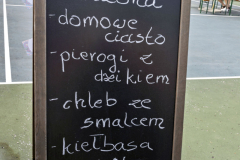 - domowe
ciasto
- pierogi z
dzikiem
- chleb ze
smalcem
- kiełbasa